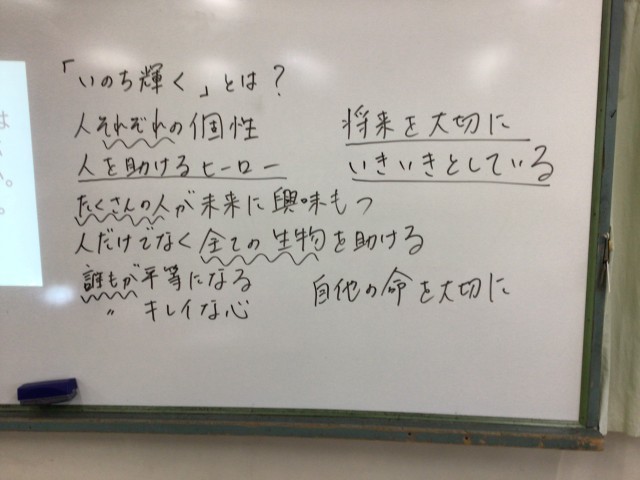 「いのち輝く」とは？
人それぞれの個性
人を助けるヒーロー
たくさんの人が未来に興味もつ
人だけでなく全ての生物を助ける
誰もが平等になる
〃 キレイな心
将来を大切に
いきいきとしている
自他の命を大切に
は
。